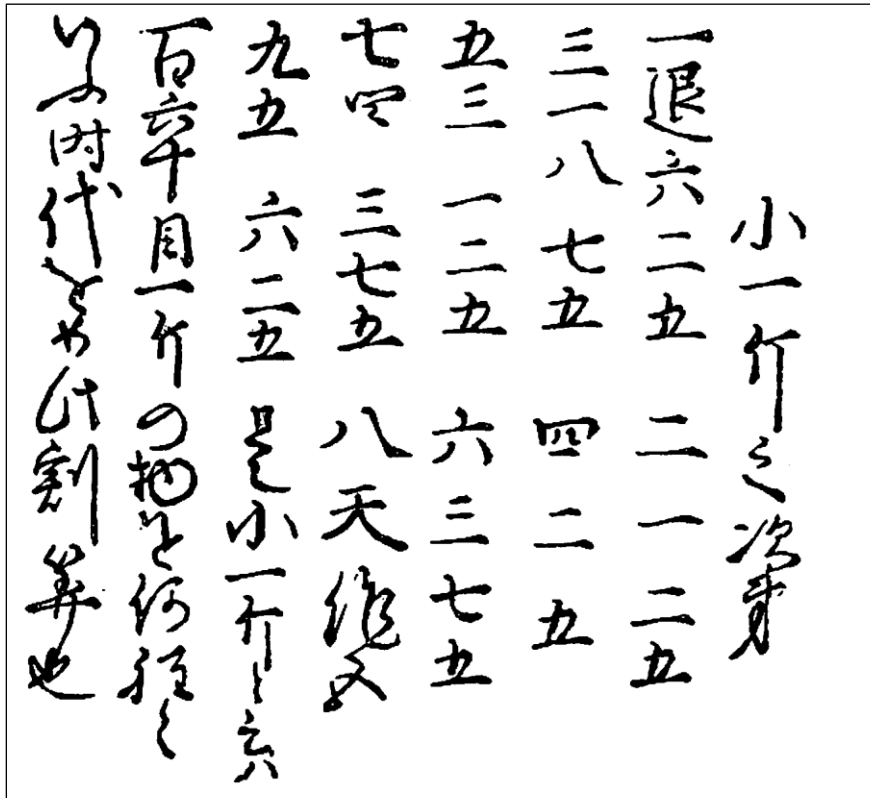 小一斤之次第
一退六二五 二一二五
三一八七五 四二五
五三一二五 六三七五
七四三七五 八天作五
九五六二五 是を小一斤と云ハ
百六十目一斤の物を何程と
いふ時代をめ此割算也